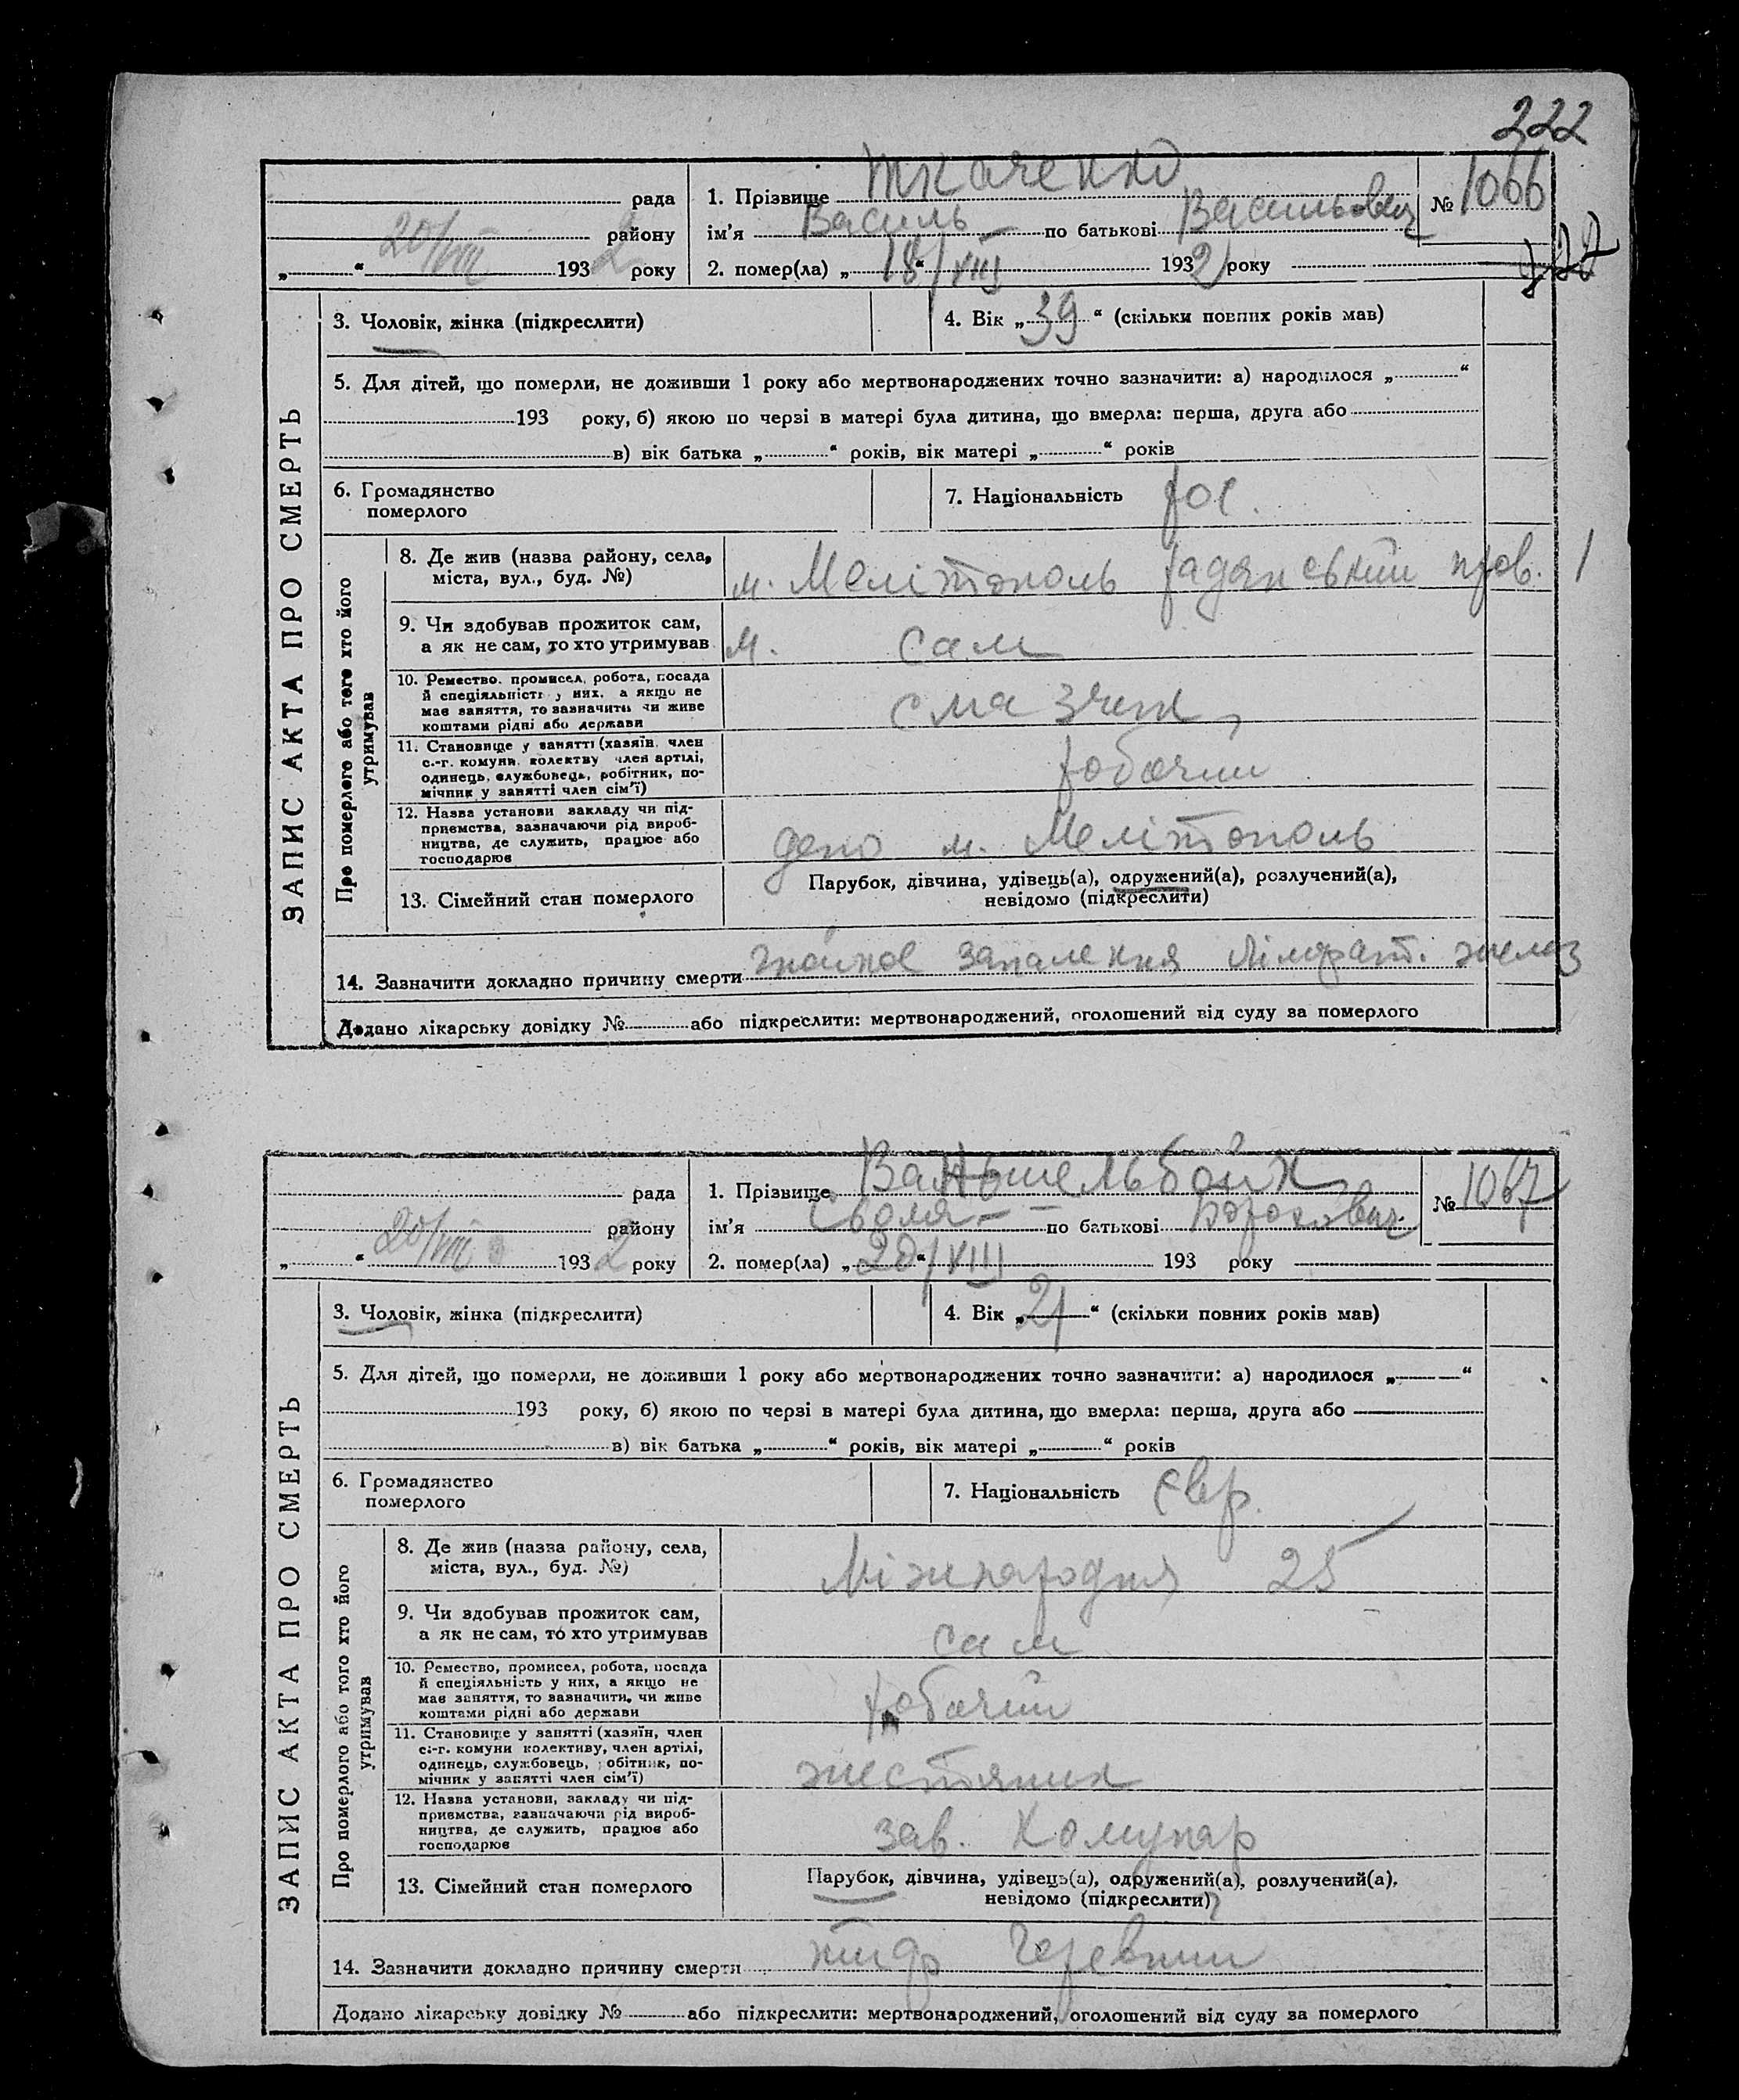 222
рада
району
20/VIII 1932 року
1. Прізвище Ткаченко
ім'я Василь по батькові Васильович
2. помер(ла) „18/VIII“ 1932 року
№ 1066
ЗАПИС АКТА ПРО СМЕРТЬ
3. Чоловік, жінка (підкреслити)
4. Вік „39“ (скільки повних років мав)
5. Для дітей, що померли, не доживши 1 року або мертвонароджених точно зазначити: а) народилося „ “
193 року, б) якою по черзі в матері була дитина, що вмерла: перша, друга або
в) вік батька „ “ років, вік матері „ “ років
6. Громадянство
померлого
7. Національність рос.
Про померлего або того хто його
утримував
8. Де жив (назва району, села,
міста, вул., буд. №)
м. Мелітополь радянський пров. 1
9. Чи здобував прожиток сам,
а як не сам, то хто утримував
м. сам
10. Ремество, промисел, робота, посада
й спеціяльність у них, а якщо не
має заняття, то зазначити чи живе
коштами рідні або держави
смазчик
11. Становище у занятті (хазяїн, член
с.-г. комуни, колективу член артілі,
одинець, службовець, робітник, по-
мічник у занятті член сім'ї)
робочий
12. Назва установи закладу чи під-
приємства, зазначаючи рід вироб-
ництва, де служить, працює або
господарює
депо м. Мелітополь
13. Сімейний стан померлого
Парубок, дівчина, удівець(а), одружений(а), розлучений(а),
невідомо (підкреслити)
14. Зазначити докладно причину смерти гнойное запалення лімфат. желез
Додано лікарську довідку № або підкреслити: мертвонароджений, оголошений від суду за померлого
рада
району
20/VIII 1932 року
1. Прізвище
ім'я по батькові Борохович
2. помер(ла) „20“/VIII 193 року
№ 1067
ЗАПИС АКТА ПРО СМЕРТЬ
3. Чоловік, жінка (підкреслити)
4. Вік „21“ (скільки повних років мав)
5. Для дітей, що померли, не доживши 1 року або мертвонароджених точно зазначити: а) народилося „ “
193 року, б) якою по черзі в матері була дитина, що вмерла: перша, друга або
в) вік батька „ “ років, вік матері „ “ років
6. Громадянство
померлого
7. Національність євр.
Про померлого або того хто його
утримував
8. Де жив (назва району, села,
міста, вул., буд. №)
Міжнародня 25
9. Чи здобував прожиток сам,
а як не сам, то хто утримував
сам
10. Ремество, промисел, робота, посада
й спеціяльність у них, а якщо не
має заняття, то зазначити, чи живе
коштами рідні або держави
робочий
11. Становище у занятті (хазяїн, член
с.-г. комуни колективу, член артілі,
одинець, службовець, робітник, по-
мічник у занятті член сім'ї)
жестяник
12. Назва установи, закладу чи під-
приємства, зазначаючи рід вироб-
ництва, де служить, працює або
господарює
зав. Комунар
13. Сімейний стан померлого
Парубок, дівчина, удівець(а), одружений(а), розлучений(а),
невідомо (підкреслити)
14. Зазначити докладно причину смерти тиф черевний
Додано лікарську довідку № або підкреслити: мертвонароджений, оголошений від суду за померлого